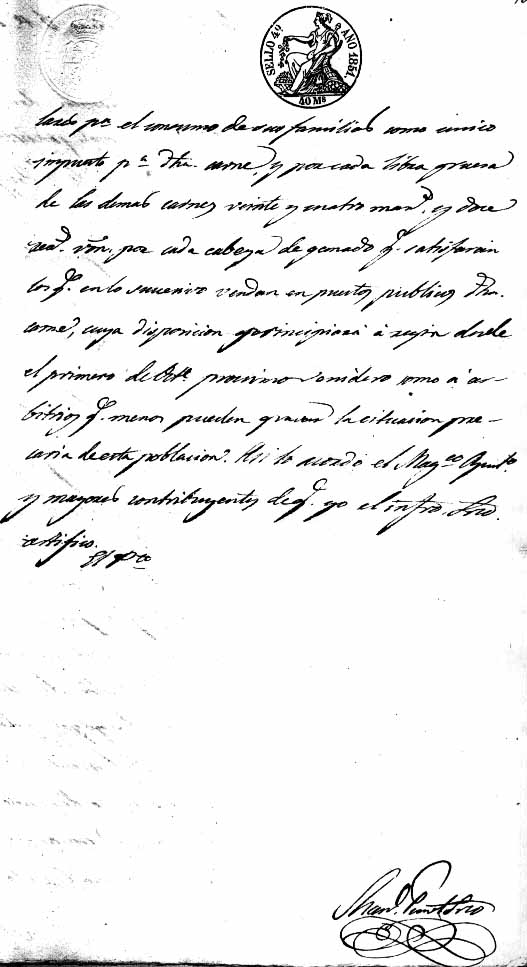 SELLO 4º AÑO 1851.
40 Ms
pª el consumo de sus familias como unico
impuesto pª dha. carne, y por cada libra gruesa
de las demas carnes veinte y cuatro marˢ. y doce
reaˢ. vón. por cada cabeza de ganado q. satisfarán
los q. en lo sucesivo vendan en puestos publicos dha.
carne, cuya disposicion principiará á regir desde
el primero de procsimo venidero como á ar-
bitrios q. menos pueden gravar la cituacion pre-
caria de esta poblacion. Asi lo acordó el Magᶜᵒ Ayuntᵒ
y mayores contribuyentes de q. yo el infro. Srio.
certifico.